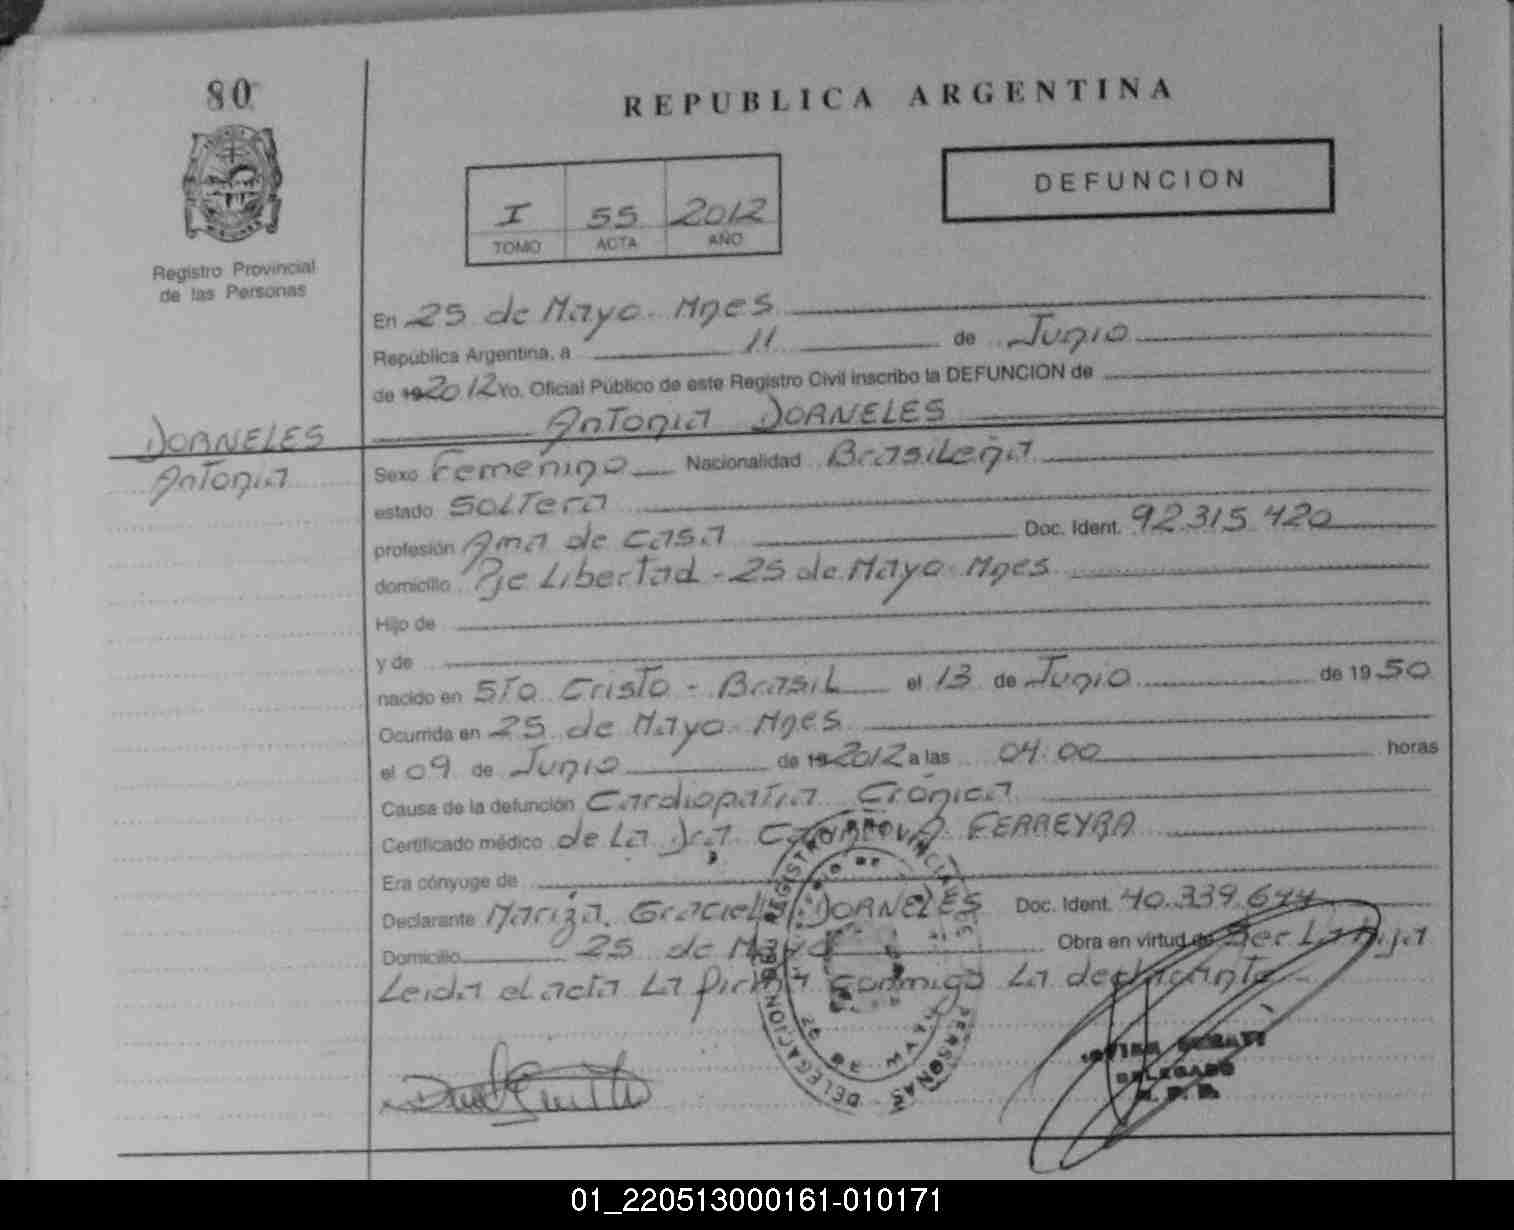 80
REPUBLICA ARGENTINA
DEFUNCION
I 55 2012
TOMO ACTA AÑO
Registro Provincial
de las Personas
En 25 de Mayo. Mnes
República Argentina, a 11 de Junio
de 19 2012 Yo. Oficial Público de este Registro Civil inscribo la DEFUNCION de
Antonia DORNELES
DORNELES
Antonia
Sexo Femenino Nacionalidad Brasileña
estado Soltera
profesión Ama de casa Doc. Ident. 92.315.420
domicilio Pje Libertad - 25 de Mayo. Mnes
Hijo de
y de
nacido en Sto Cristo - Brasil el 13 de Junio de 1950
Ocurrida en 25 de Mayo. Mnes
el 09 de Junio de 19 2012 a las 04:00 horas
Causa de la defunción Cardiopatia Crónica
Certificado médico de La Dra FERREYRA
Era cónyuge de
Declarante Mariza Graciela DORNELES Doc. Ident. 40.339.644
Domicilio 25 de Mayo Obra en virtud de Ser La hija
Leida el acta La firma conmigo La declarante
REGISTRO PROVINCIAL DE LAS PERSONAS
DELEGACION
25 DE MAYO
DELEGADO
01_220513000161-010171